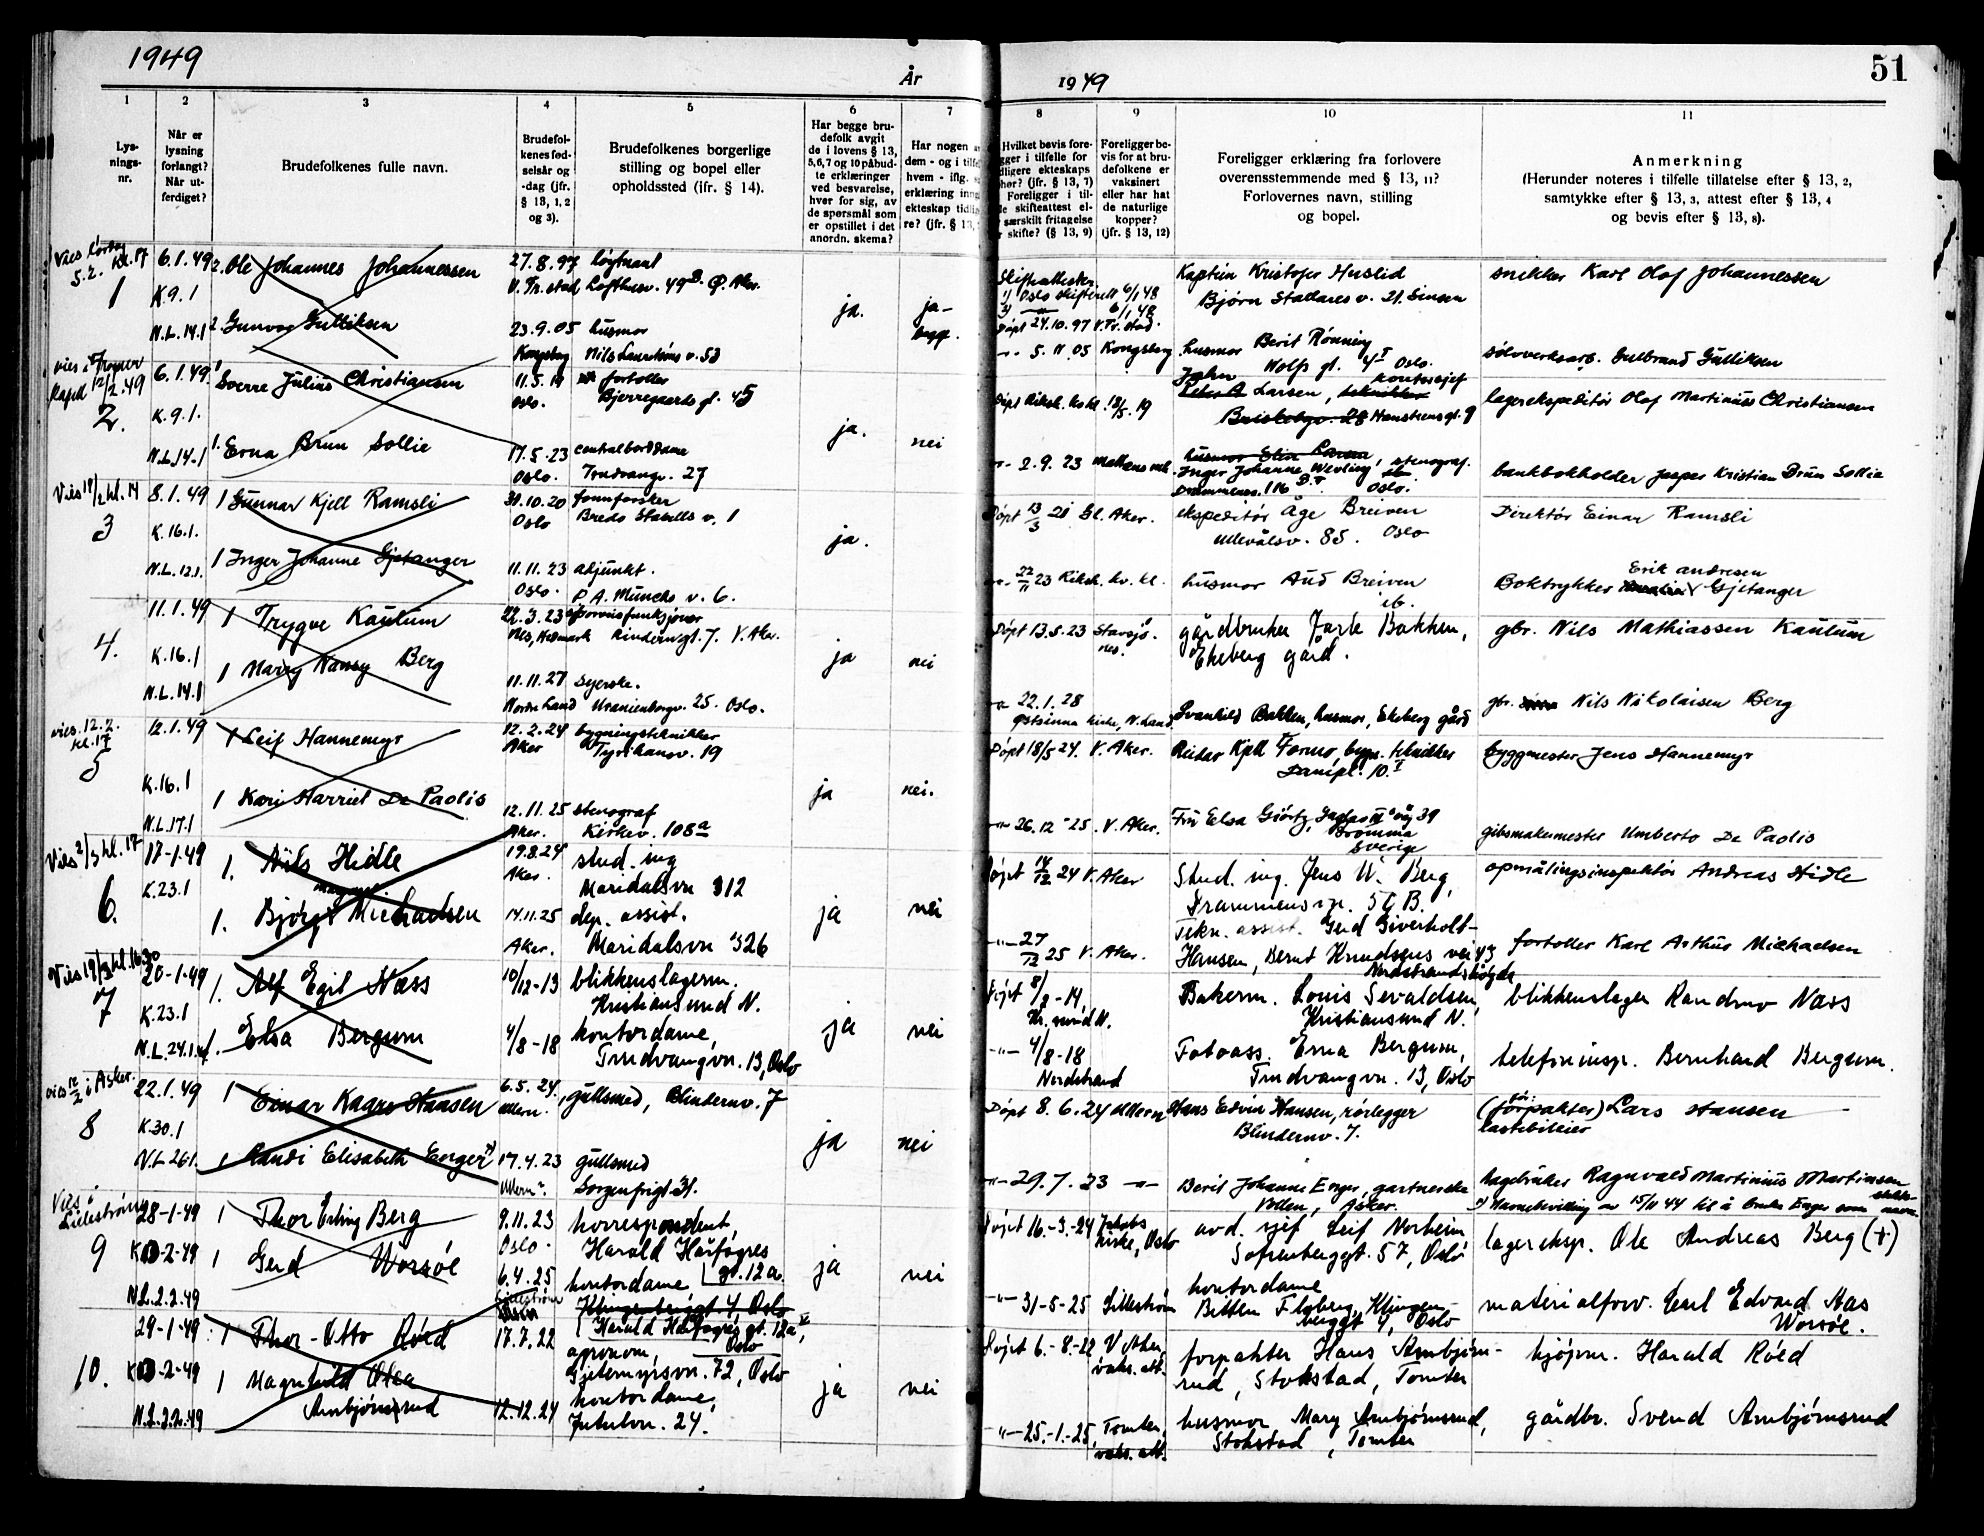 1949
År
1949
51
1
2
3
4
5
6
7
8
9
10
11
Lys-
nings-
nr.
Når er
lysning
forlangt?
Når ut-
ferdiget?
Brudefolkenes fulle navn.
Brudefol-
kenes fød-
selsår og
-dag (jfr.
§ 13, 1, 2
og 3).
Brudefolkenes borgerlige
stilling og bopel eller
opholdssted (ifr. § 14).
Har begge bru-
defolk avgit
de i lovens § 13,
5,6,7 og 10 påbud-
te erklæringer
ved besvarelse,
hver for sig, av
de spørsmål som
er opstillet i det
anordn. skema?
Har nogen a
dem - og i tilfe
hvem - iflg. s
erklæring inng
ekteskap tidlig
re? (jfr. § 13,
Hvilket bevis fore-
gger i tilfelle for
dligere ekteskaps
phør? (jfr. § 13, 7)
Foreligger i til-
le skifteattest el-
særskilt fritagelse
r skifte? (§ 13, 9)
Foreligger be-
vis for at bru-
defolkene er
vaksinert
eller har hat
de naturlige
kopper?
(jfr. § 13, 12)
Foreligger erklæring fra forlovere
overensstemmende med § 13, 11?
Forlovernes navn, stilling
og bopel.
Anmerkning
(Herunder noteres i tilfelle tillatelse efter § 13, 2,
samtykke efter § 13, 3, attest efter § 13, 4
og bevis efter § 13, 8).
Vies lørdag
5.2. kl. 17
1
6.1.49
K.9.1
N.L.14.1
2. Ole Johannes Johannessen
27.8.97
V. Tr. stad
løytnant
Lofthusv. 49B. Ø. Aker.
2 Gunvor Gulliksen
23.9.05
Kongsberg
husmor
Nils Lauritsøns v. 53
ja.
ja-
begge.
Skifteattester
1) Oslo skifterett 6/1 48
2) -"- 6/1 48
Døpt 24.10.97 V. Tr. stad.
-"- 5.11.05 Kongsberg
Kaptein Kristofer Huslid
Bjørn Stallares v. 21. Sinsen
husmor Berit Rønning
Wolfs gt. 4I Oslo.
snekker Karl Olaf Johannessen
sølvverksarb. Gulbrand Gulliksen
vies i Frogner
kapell 12/2.49
2.
6.1.49
K.9.1.
N.L.14.1
1 Sverre Julius Christiansen
11.5.19
Oslo.
fortoller
Bjerregaards gt. 45
1. Erna Brun Sollie
17.5.23
Oslo.
centralborddame
Trudvangv. 27
ja.
nei
Døpt Riksh. ko kl. 13/5.19
-"- 2.9.23
John
Larsen, tekniker kontorsjef
Hanstensgt. 9
husmor Elin Larsen
Inger Johanne Wevling, stenograf.
Drammensv. 116 Oslo.
lagerekspeditør Olaf Martinius Christiansen
bankbokholder Jasper Kristian Brun Sollie
Vies 19/2 kl. 14
3
8.1.49
K.16.1.
N.L.12.1.
1 Gunnar Kjell Ramsli
31.10.20
Oslo
tannforsker
Bredo Stabells v. 1
1 Inger Johanne Gjetanger
11.11.23
Oslo.
adjunkt.
P.A. Munchs v. 6.
ja.
Døpt 13/3 21 Gl. Aker.
-"- 22/11 23 Riksh. kv. kl.
ekspeditør Åge Breiven
Ullevålsv. 85. Oslo
husmor Aud Breiven
ib.
Direktør Einar Ramsli
Erik Andresen
Boktrykker Gjetanger
4.
11.1.49
K.16.1
N.L.14.1
1 Trygve Kaulum
22.3.23
Nes, Hedmark
sporveisfunksjonær
Rindernsgt. 7. V. Aker.
1 Mary Nancy Berg
11.11.27
Nordre Land
syerske.
Uranienborgv. 25. Oslo.
ja
nei
Døpt 13.5.23 Stavsjø.
nes.
-"- 22.1.28
Østsinna kirke, N. Land
gårdbruker Jarle Bakken,
Ekeberg gård.
Svanhild Bakken, husmor, Ekeberg gård
gbr. Nils Mathiassen Kaulum
gbr. Nils Nikolaisen Berg
vies. 12.2.
kl. 17
5
12.1.49
K.16.1
N.L.17.1
1 Leif Hannemyr
12.2.24
Aker
bygningstekniker
Tyrihansv. 19
1 Kari Harriet De Paolis
12.11.25
Aker.
stenograf
Kirkev. 108a
ja
nei.
Døpt 18/5 24. V. Aker.
-"- 26.12-25. V. Aker.
Reidar Kjell Formo, bygn. tekniker
Damipl. 10.I
Fru Elsa Giørtz,
Bromma
Sverige
byggmester Jens Hannemyr
gibsmakermester Umberto De Paolis
Vies 2/3 kl. 17
6.
17-1.49
K.23.1
1. Nils Hidle
19.8.24
Aker.
stud. ing
Maridalsvn 312
1. Bjørg Michaelsen
14.11.25
Aker.
dep. assist.
Maridalsvn 326
ja
nei
Døpt 14/12 24 V. Aker
-"- 27/12 25 V. Aker.
Stud. ing. Jens W. Berg,
Drammensvn. 50 B.
Tekn. assist. Gerd Siverholt-
Hansen, Bernt Knudsens vei 43
Nordstrandshøgda
opmålingsinspektør Andreas Hidle
fortoller Karl Arthur Michaelsen
Vies 19/3 kl. 16.30
7
20-1-49
K.23.1
N.L.24.1.49
1. Alf Egil Næss
10/12-13
blikkenslagerm.
Kristiansund N.
1. Elsa Bergum
4/8-18
kontordame,
Trudvangvn. 13, Oslo
ja
nei
Døpt 8/2-14,
Kr. sund N.
-"- 4/8-18
Nordstrand
Bakerm. Louis Sevaldsen,
Kristiansund N.
Fotoass. Erna Bergum,
Trudvangvn. 13, Oslo
blikkenslager Randmo Næss
telefoninsp. Bernhard Bergum.
vies 12/2 i Asker.
8
22.1.49
K.30.1
N.L.26.1.
1 Einar Kagre Hansen
6.5.24.
Ullern.
gullsmed, Blindernv. 7
1 Randi Elisabeth Enger x)
17.4.23
Ullern.
gullsmed
Sorgenfrigt. 31.
ja
nei
Døpt 8.6.24 Ullern
-"- 29.7.23 -"-
Hans Edvin Hansen, rørlegger
Blindernv. 7.
Berit Johanne Enger, gartnerske
Vollen, Asker.
(forpakter) Lars Hansen
lastebileier
hagebruker Ragnvald Martinius Martinsen
x) Navnebevilling av 15/11 44 til å bruke Enger som slekts-
navn
Vies i
Lillestrøm
9
28-1-49
K. -2-49
N.L.2.2.49
1 Thor Erling Berg
9.11.23
Oslo.
korrespondent,
Harald Hårfagres
gt. 12a.
1 Gerd Worsøe
6.4.25
Lillestrøm
kontordame
Klingenberggt 4, Oslo
Harald Hårfagres gt. 12a V,
Oslo
ja
nei
Døpt 16.-3.-24 Jakobs
kirke, Oslo
-"- 31-5-25 Lillestrøm
avd. sjef Leif Norheim
Sofienberggt. 57, Oslo
kontordame
Betten Floberg, Klingen-
berggt 4, Oslo
lagereksp. Ole Andreas Berg (+)
materialforv. Emil Edvard Aas
Worsøe.
10.
29-1-49
K. -2-49
N.L.2.2.49
1 Thor-Otto Røed
17.7.22
agronom,
Gjetemyrsvn. 72, Oslo
1 Magnhild Olea
Arnbjørnsrud
12.12.24
kontordame,
Jutulvn. 24.
ja
nei
Døpt 6.-8.-22 V. Aker,
vaks. att.
-"- 25.-1.-25, Tomter,
vaks. att.
forpakter Hans Arnbjørn-
rud, Stokstad, Tomter
husmor Mary Arnbjørnsrud,
Stokstad, Tomter
kjøpm. Harald Røed
gårdbr. Svend Arnbjørnsrud